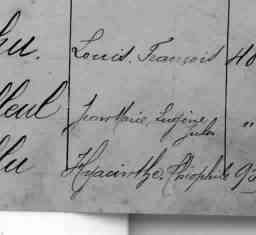 hu. Louis, François 40
lleul Jean Marie, Eugène "
Jules
llu Hyacinthe, Théophile 93